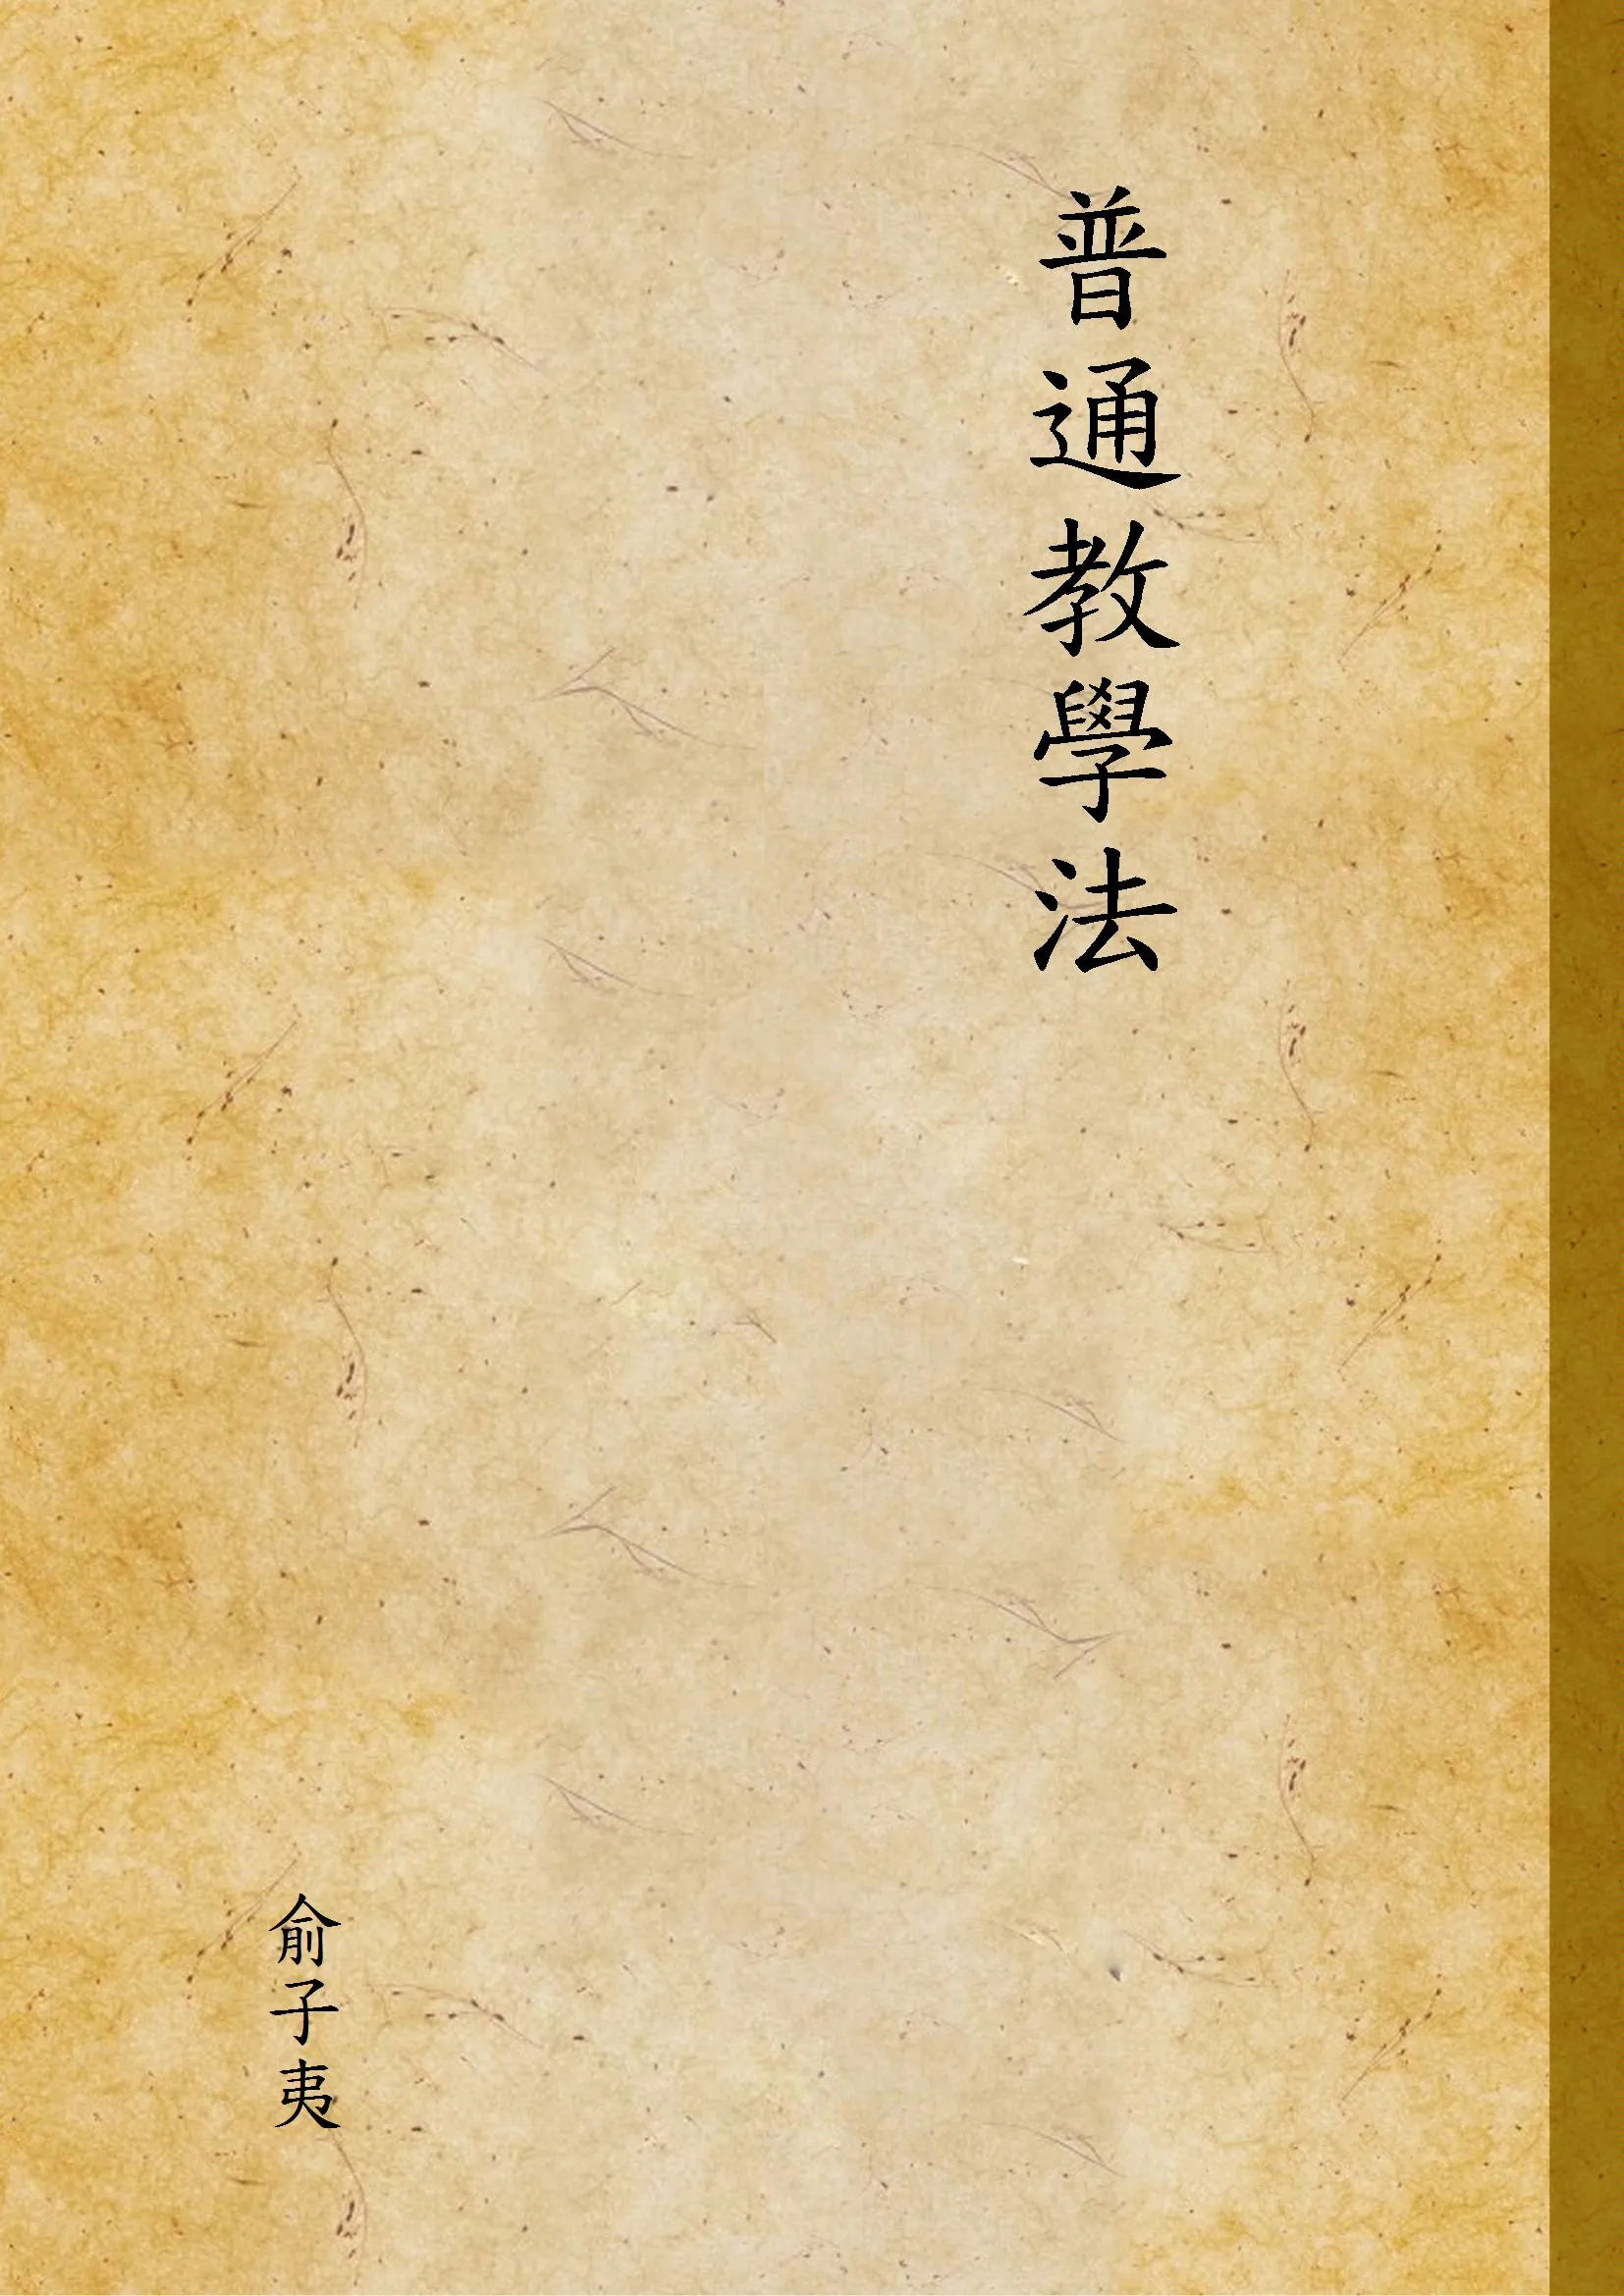 普通教學法
俞子夷